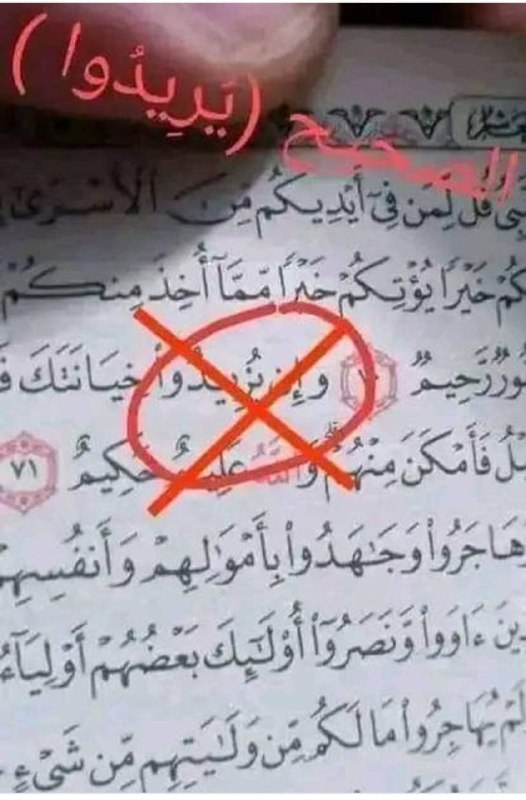 الصحيح (يَرِيدُوا)
بِىُّ قُل لِّمَن فِىٓ أَيْدِيكُم مِّنَ ٱلْأَسْرَىٰٓ
كُمْ خَيْرًا يُؤْتِكُمْ خَيْرًا مِّمَّآ أُخِذَ مِنكُمْ
ورٌ رَّحِيمٌ وَإِن خِيَانَتَكَ فَ
لُ فَأَمْكَنَ مِنْهُمْ وَٱللَّهُ عَلِيمٌ حَكِيمٌ ٧١
هَاجَرُوا۟ وَجَٰهَدُوا۟ بِأَمْوَٰلِهِمْ وَأَنفُسِهِمْ
ينَ ءَاوَوا۟ وَّنَصَرُوٓا۟ أُو۟لَٰٓئِكَ بَعْضُهُمْ أَوْلِيَآءُ
لَمْ يُهَاجِرُوا۟ مَا لَكُم مِّن وَلَٰيَتِهِم مِّن شَىْءٍ